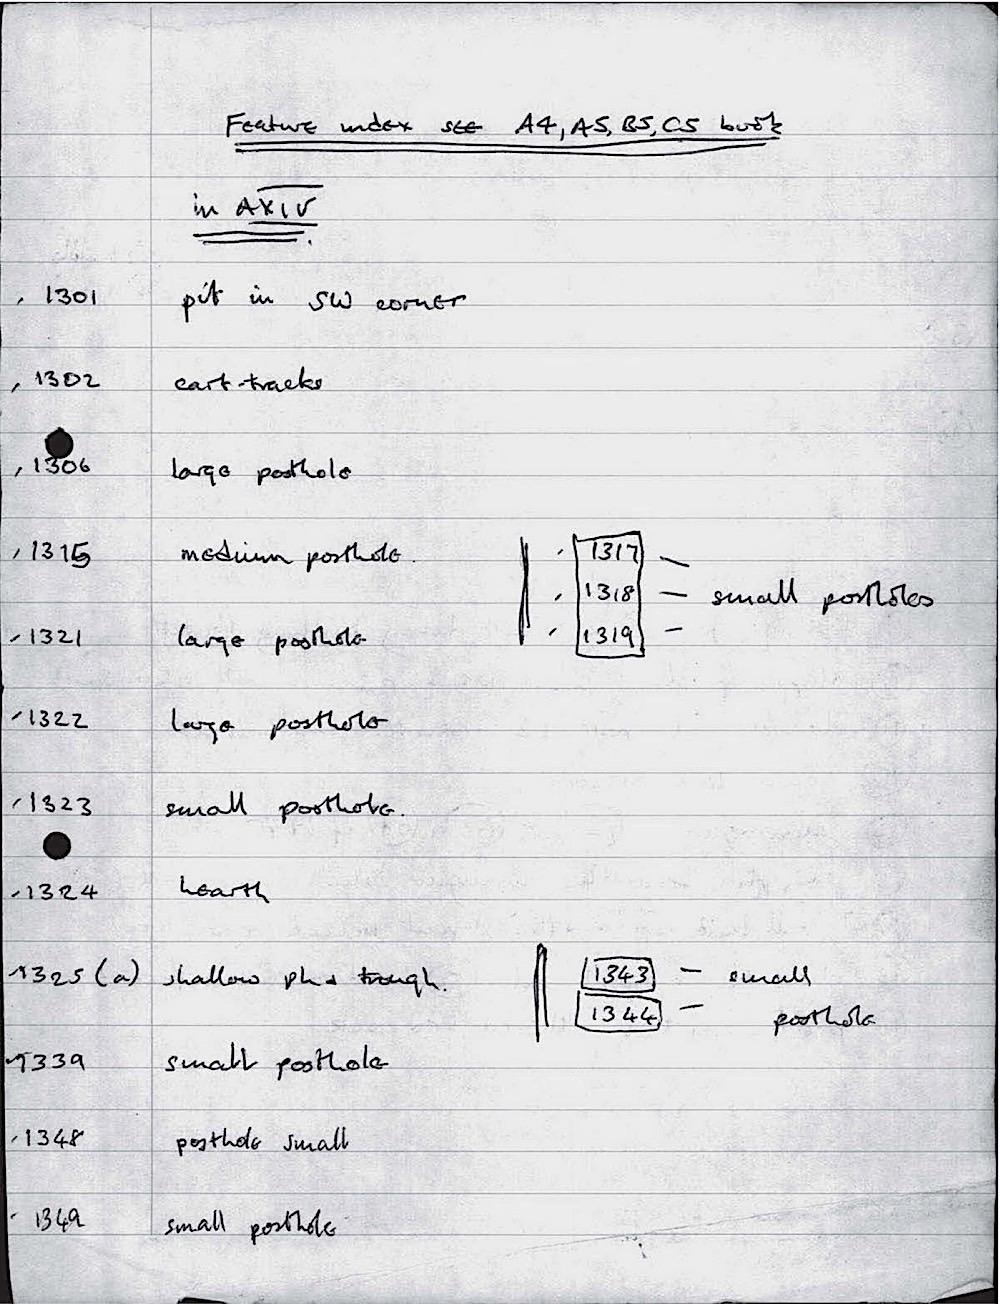 Feature index see A4, A5, B5, C5 book
in AXIV
1301 pit in SW corner
1302 cart-tracks
1306 large posthole
1315 medium posthole.
1317 —
1318 — small postholes
1319 —
1321 large posthole
1322 large posthole
1323 small posthole.
1324 hearth
1325 (a) shallow ph & trough.
1343 — small
1344 — posthole
1339 small posthole
1348 posthole small
1349 small posthole